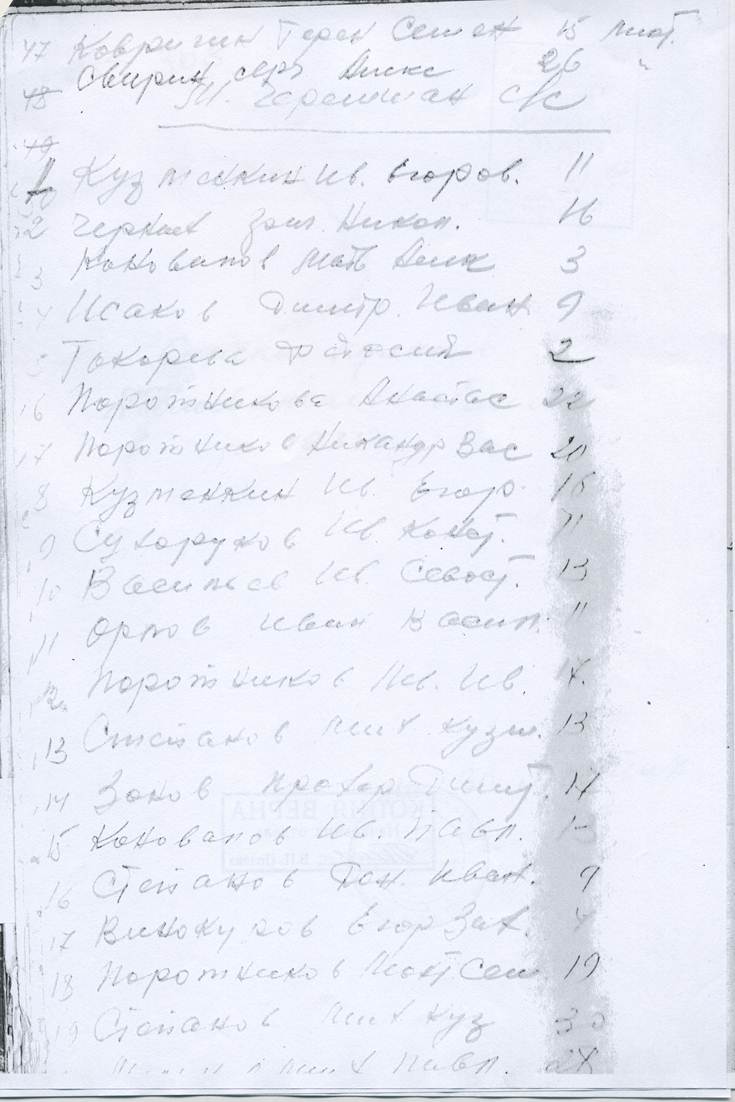 47 Ковригин Герон Семен 15 лист.
48 Свирин Серг Алекс 26 "
М. Черемшан с/с
49
1 Кузменкин Ив. Егоров. 11
2 Черных Никол. 16
3 Коновалов Матв Алек 3
4 Исаков Дмитр. Иван 9
5 Токорева 2
6 Поротникова Анастас 22
7 Поротников Никандр Вас 20
8 Кузменкин Ив. Егор. 16
9 Сухоруков Ив. Конст. 11
10 Васильев Ив. Севост. 13
11 Орлов Иван Васил. 11
12 Поротников Ив. Ив. 17.
13 Степанов Мих Кузм. 13
14 Зоков Прохор Дмит. 14
15 Коновалов Ив. Павл. 13
КОПИЯ ВЕРНА
16 Степанов Иван. 9
17 Винокуров Егор Зах. 4
18 Поротников Конст Сем 19
19 Степанов Мих Куз 30
Мих Павл. 28